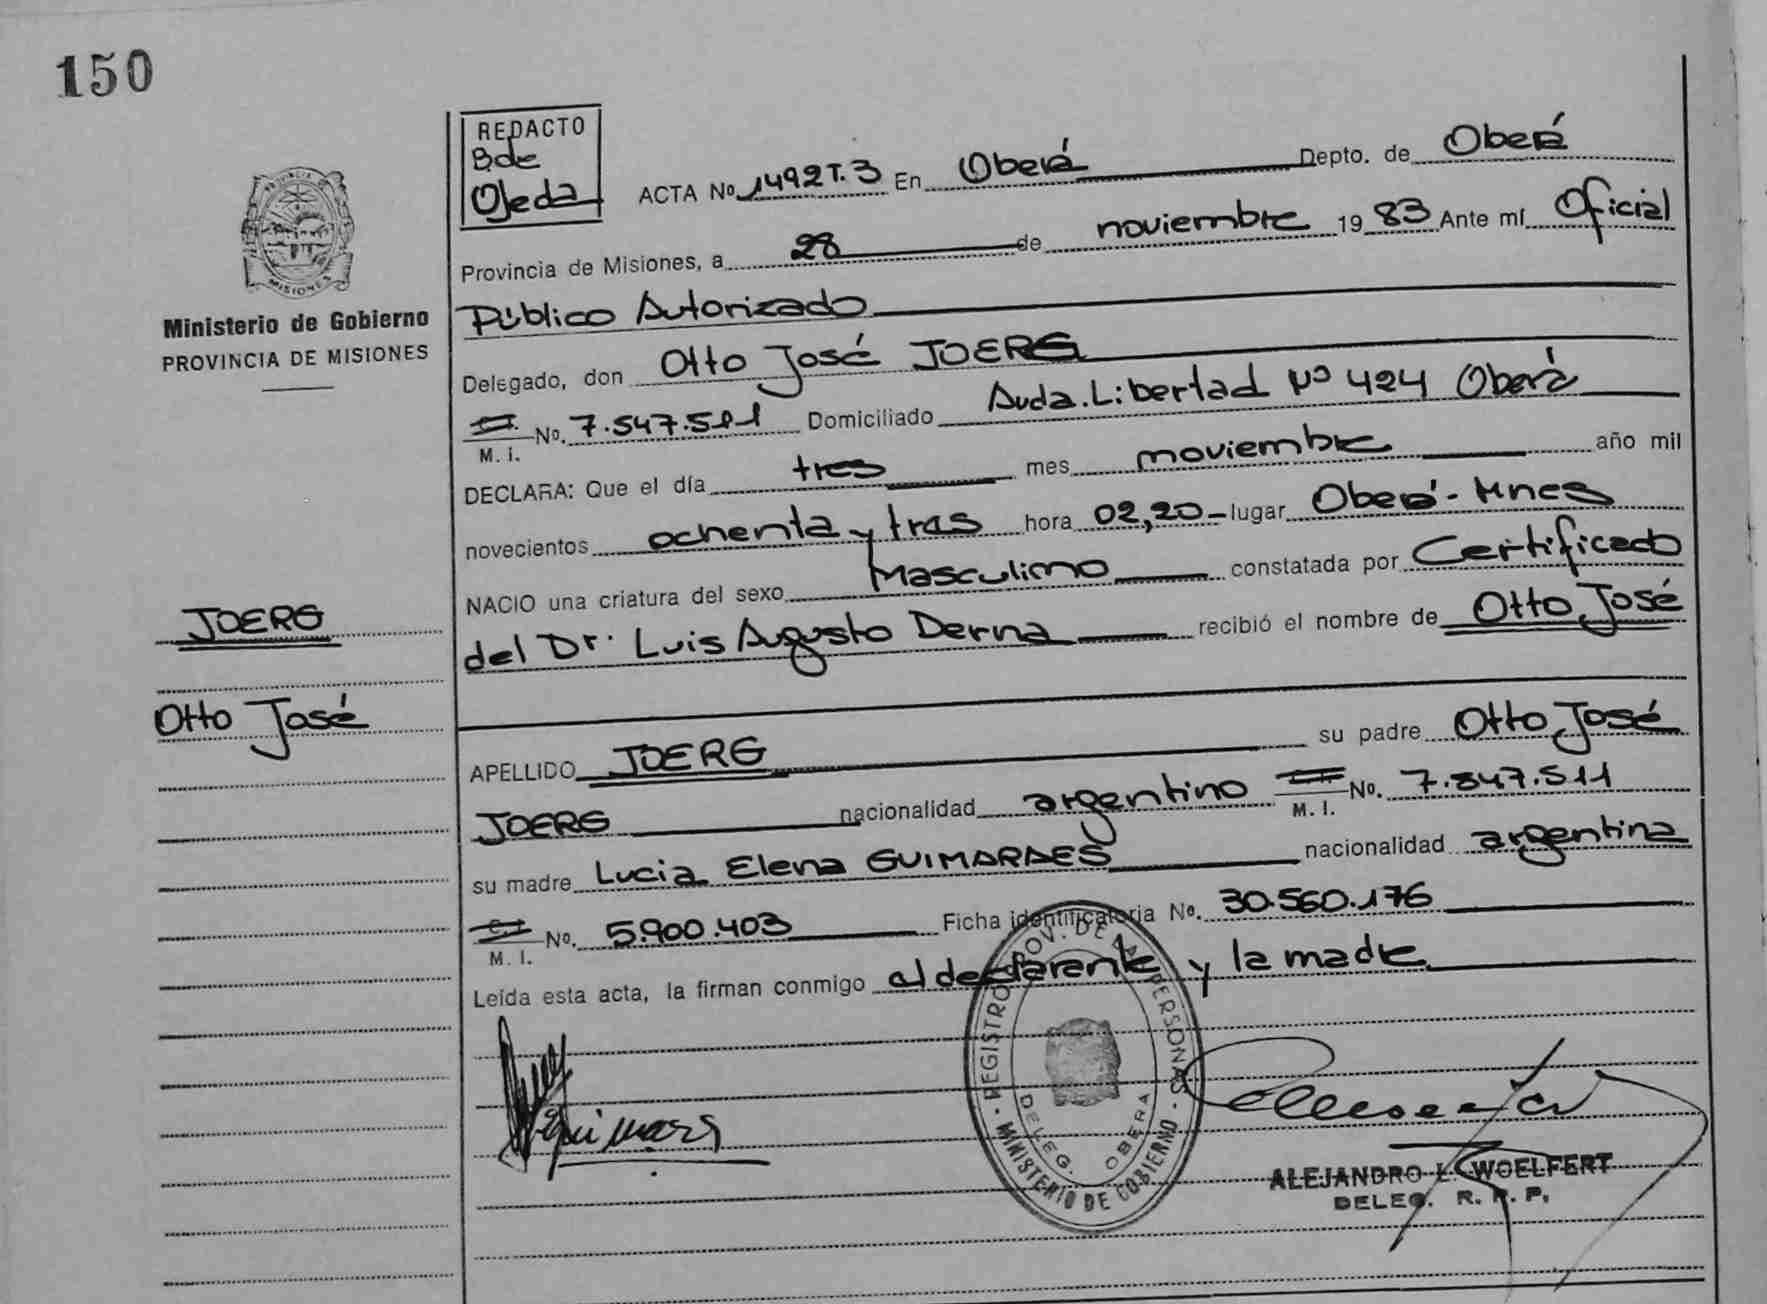 150
REDACTO
Bde
Ojeda
ACTA No 1492 T.3 En Oberá Depto. de Oberá
Provincia de Misiones, a 28 de noviembre 1983 Ante mí Oficial
Público Autorizado
Ministerio de Gobierno
PROVINCIA DE MISIONES
Delegado, don Otto José JOERG
M. I. No. 7.547.511 Domiciliado Avda. Libertad Nº 424 Oberá
DECLARA: Que el día tres mes noviembre año mil
novecientos ochenta y tres hora 02,20 - lugar Oberá - Mnes
NACIO una criatura del sexo Masculino constatada por Certificado
del Dr. Luis Augusto Derna recibió el nombre de Otto José
JOERG
Otto José
APELLIDO JOERG su padre Otto José
JOERG nacionalidad argentino M. I. No. 7.547.511
su madre Lucia Elena GUIMARAES nacionalidad argentina
M. I. No. 5.900.403 Ficha identificatoria No. 30.560.176
Leída esta acta, la firman conmigo el declarante y la madre
REGISTRO PROV. DE LAS PERSONAS
DELEG. OBERA
MINISTERIO DE GOBIERNO
ALEJANDRO L. WOELFERT
DELEG. R. P. P.